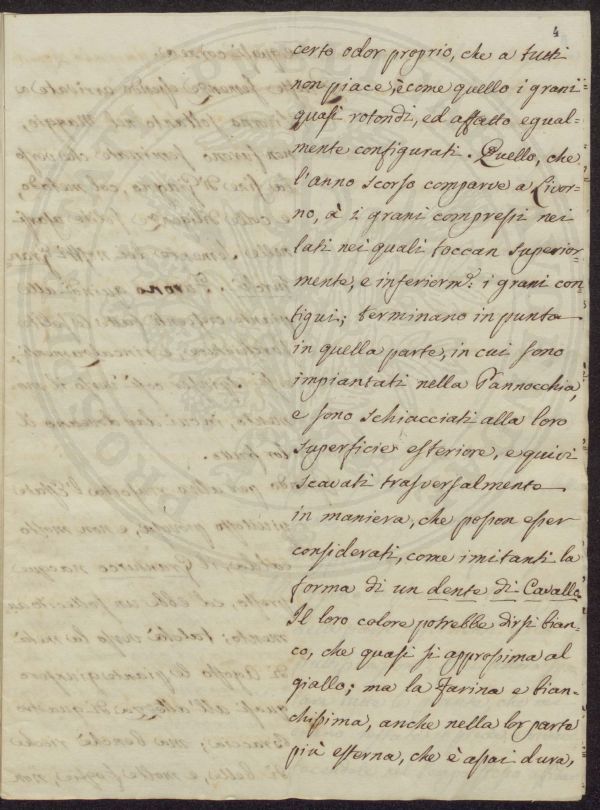 4
certo odor proprio, che a tutti
non piace, è come quello i grani
quasi rotondi, ed affatto egual-
mente configurati. Quello, che
l'anno scorso comparve a Livor-
no, à i grani compressi nei
lati nei quali toccan superior-
mente, e inferiorm.e: i grani con
tigui; terminano in punta
in quella parte, in cui sono
impiantati nella Pannocchia,
e sono schiacciati alla loro
superficie esteriore, e quivi
scavati trasversalmente
in maniera, che posson esser
considerati, come imitanti la
forma di un dente di Cavallo.
Il loro colore potrebbe dirsi bian-
co, che quasi si approssima al
giallo; ma la farina e bian-
chissima, anche nella lor parte
più esterna, che è assai dura,